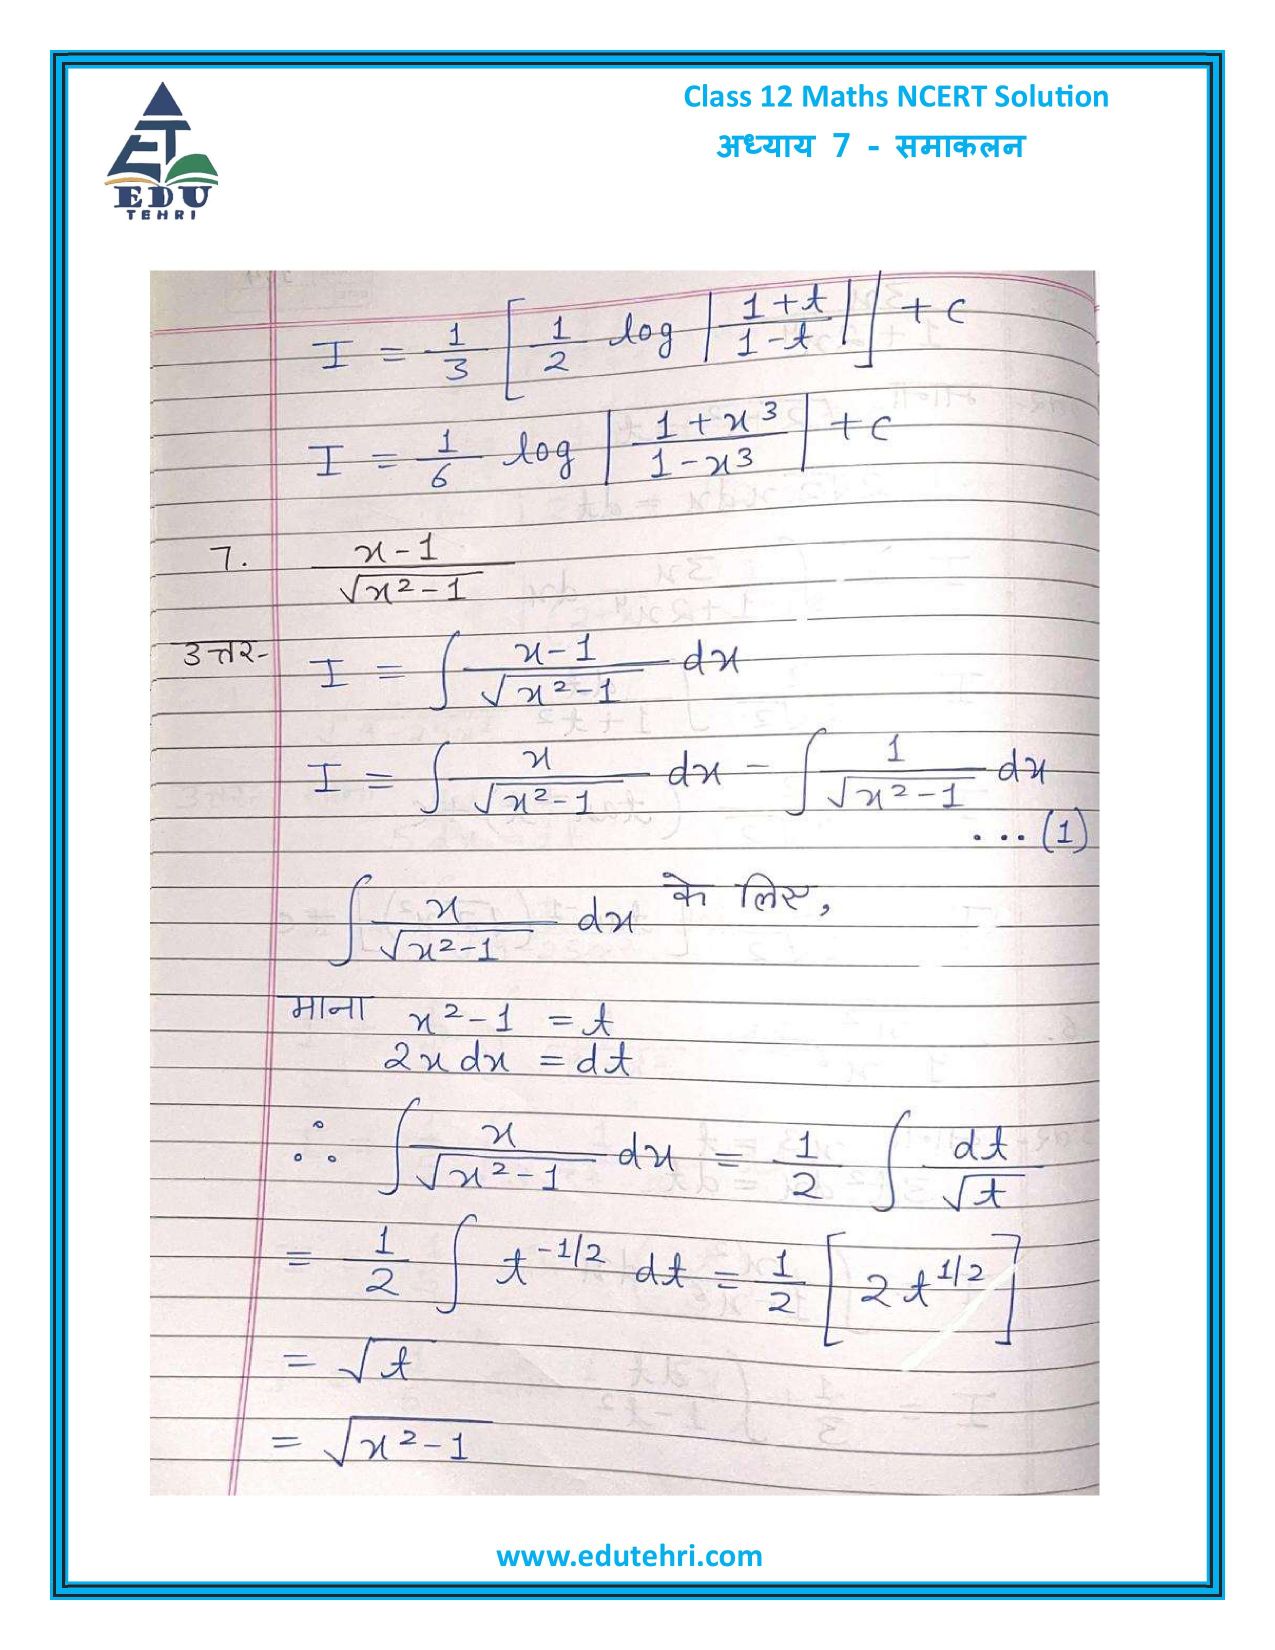 Class 12 Maths NCERT Solution
अध्याय 7 - समाकलन
EDU
TEHRI
I = 1/3 [ 1/2 log | (1+t)/(1-t) | ] + c
I = 1/6 log | (1+x³)/(1-x³) | + c
7. (x-1)/√(x²-1)
उत्तर- I = ∫ (x-1)/√(x²-1) dx
I = ∫ x/√(x²-1) dx - ∫ 1/√(x²-1) dx
...(1)
∫ x/√(x²-1) dx के लिए,
माना x²-1 = t
2x dx = dt
∴ ∫ x/√(x²-1) dx = 1/2 ∫ dt/√t
= 1/2 ∫ t^(-1/2) dt = 1/2 [ 2 t^(1/2) ]
= √t
= √(x²-1)
www.edutehri.com